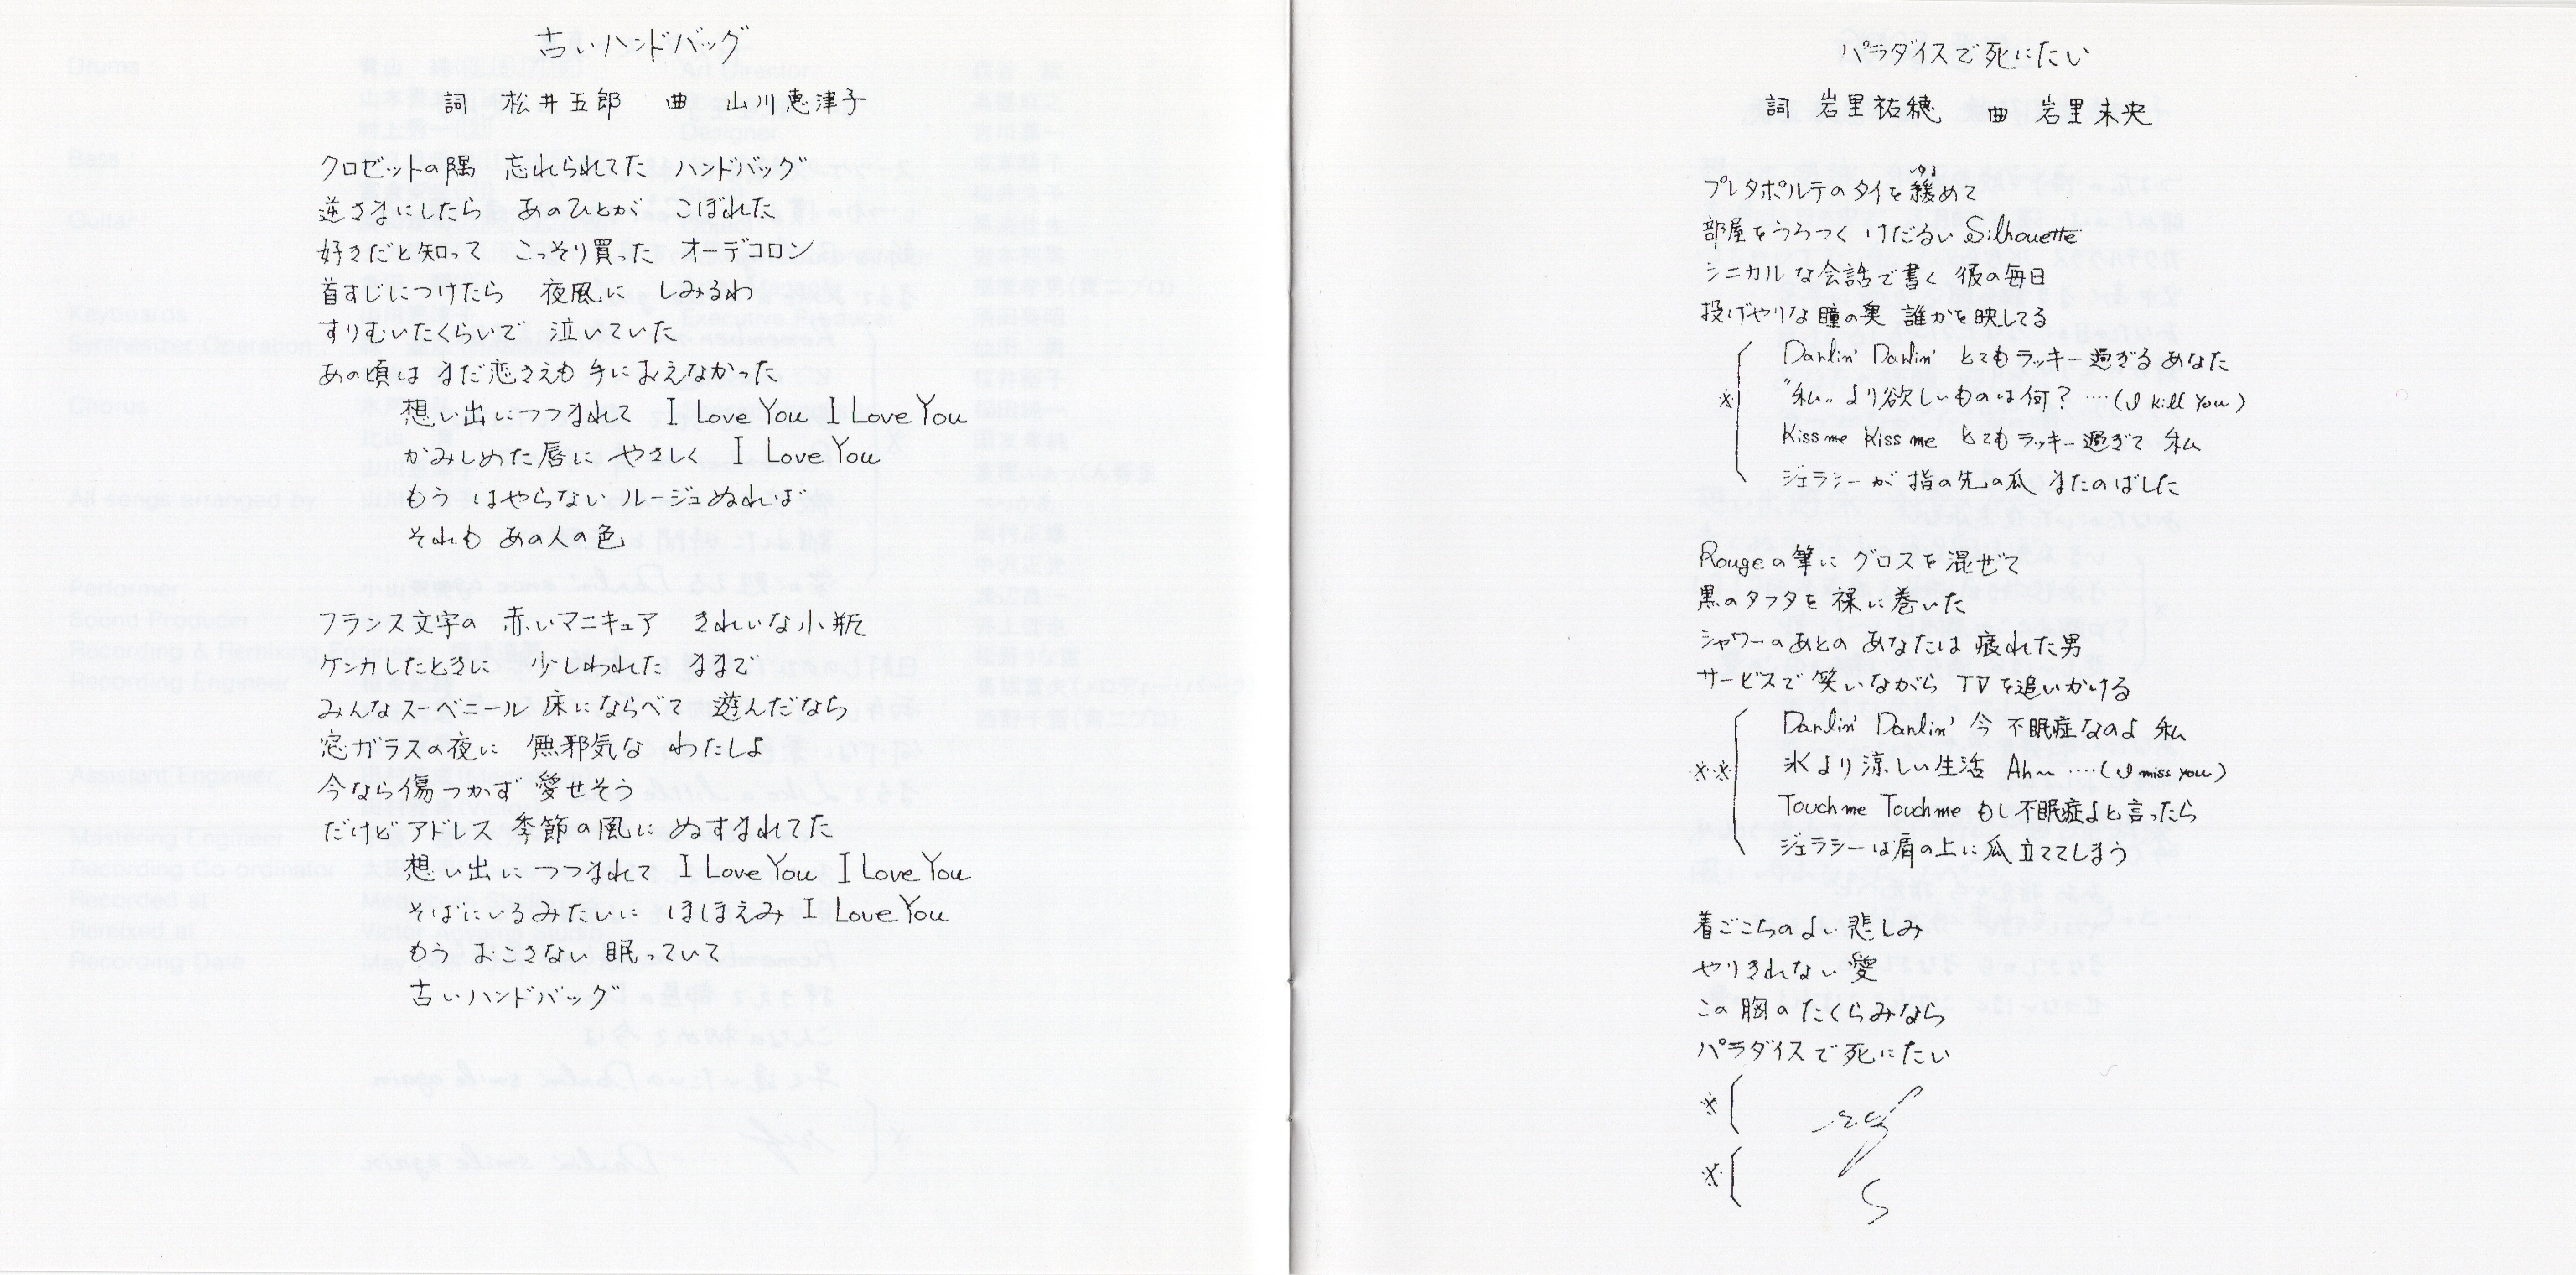 古いハンドバッグ
詞 松井五郎 曲 山川恵津子
クロゼットの隅 忘れられてた ハンドバッグ
逆さまにしたら あのひとが こぼれた
好きだと知って こっそり買った オーデコロン
首すじにつけたら 夜風に しみるわ
すりむいたくらいで 泣いていた
あの頃は まだ恋さえも 手におえなかった
想い出につつまれて I Love You I Love You
かみしめた唇に やさしく I Love You
もう はやらない ルージュぬれば
それも あの人の色
フランス文字の 赤いマニキュア きれいな小瓶
ケンカしたときに 少しわれた ままで
みんなスーベニール 床にならべて 遊んだなら
窓ガラスの夜に 無邪気な わたしよ
今なら傷つかず 愛せそう
だけどアドレス 季節の風に ぬすまれてた
想い出に つつまれて I Love You I Love You
そばにいるみたいに ほほえみ I Love You
もう おこさない 眠っていて
古いハンドバッグ
パラダイスで死にたい
詞 岩里祐穂 曲 岩里未央
プレタポルテのタイを緩めて
ゆる
部屋をうろつく けだるい Silhouette
シニカルな会話で書く 後の毎日
投げやりな瞳の奥 誰かを映してる
Darlin' Darlin' とてもラッキー過ぎる あなた
※ "私" より欲しいものは何? ‥‥(I kill you)
Kiss me Kiss me とてもラッキー過ぎて 私
ジェラシーが 指の先の爪 またのばした
Rougeの筆に グロスを混ぜて
黒のタフタを 裸に巻いた
シャワーのあとの あなたは 疲れた男
サービスで 笑いながら TVを追いかける
Darlin' Darlin' 今 不眠症なのよ 私
※※ 氷より涼しい生活 Ah〜 ‥‥(I miss you)
Touch me Touch me もし不眠症よと言ったら
ジェラシーは肩の上に爪 立ててしまう
着ごこちのよい 悲しみ
やりきれない 愛
この胸の たくらみなら
パラダイスで 死にたい
※
※